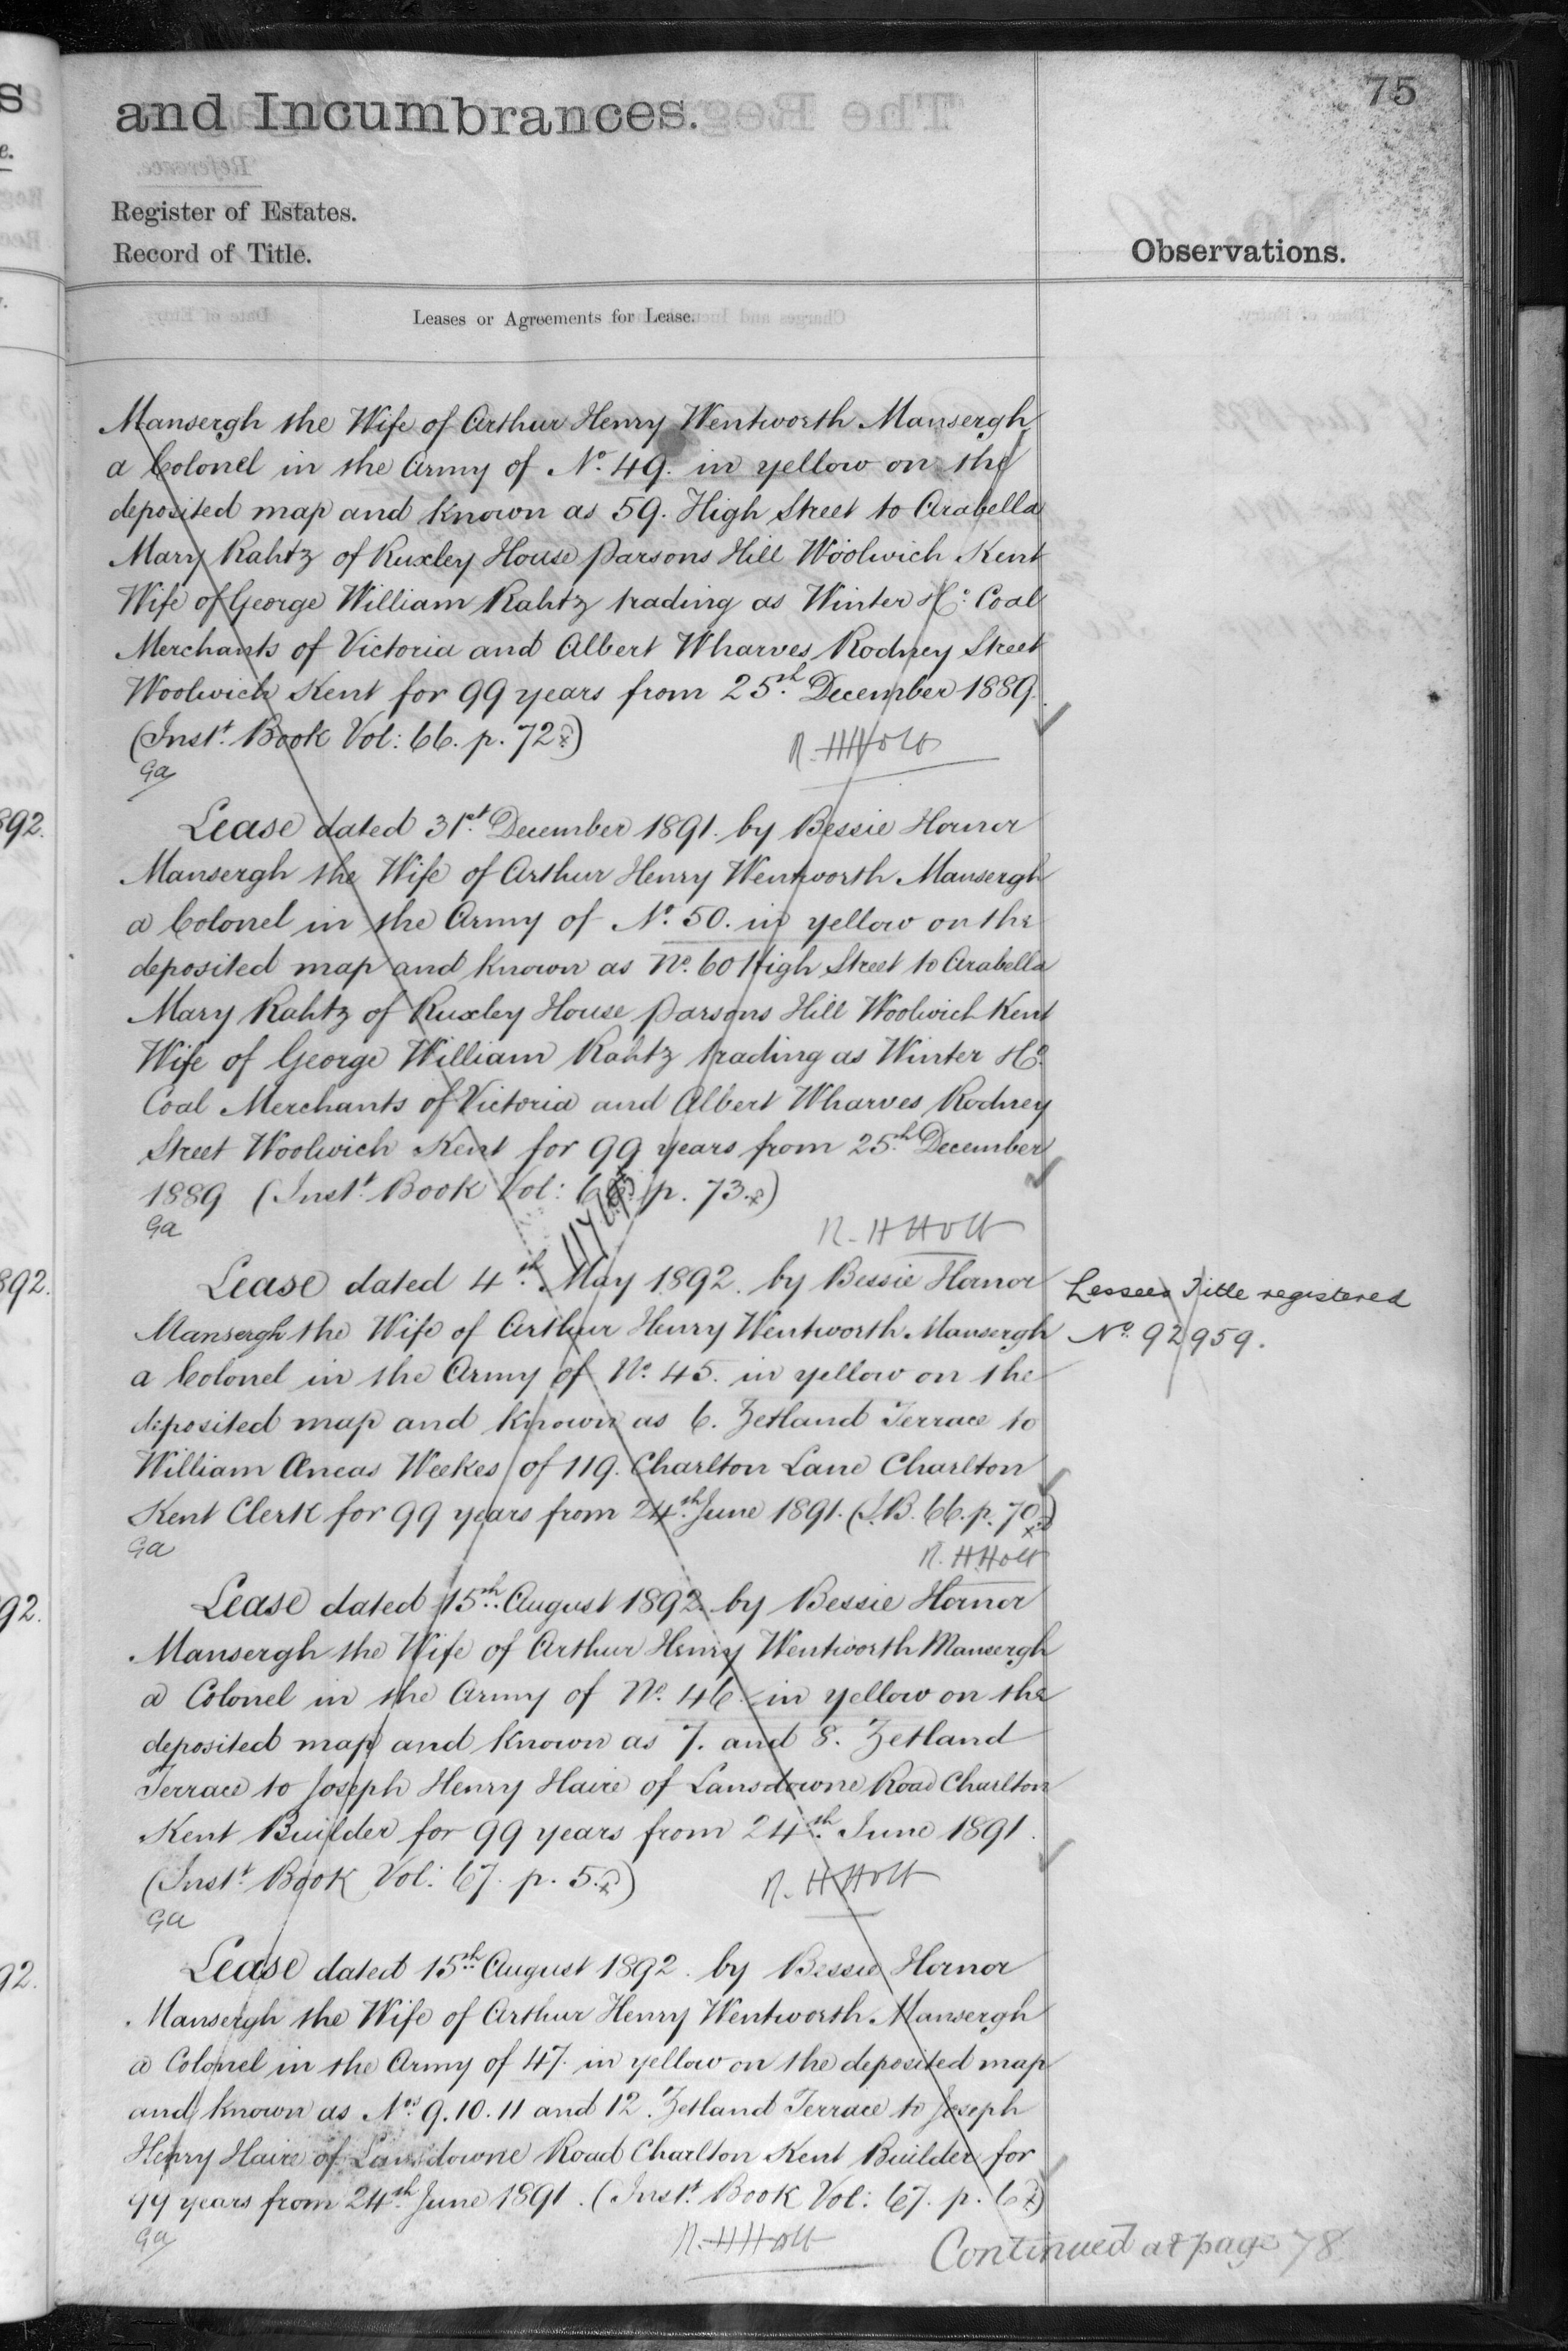 75
and Incumbrances.
Register of Estates.
Record of Title.
Observations.
Leases or Agreements for Lease.
Mansergh the Wife of Arthur Henry Wentworth Mansergh
a Colonel in the Army of No. 49. in yellow on the
deposited map and known as 59. High Street to Arabella
Mary Rahtz of Ruxley House Parsons Hill Woolwich Kent
Wife of George William Rahtz trading as Winter & Co. Coal
Merchants of Victoria and Albert Wharves Rodney Street
Woolwich Kent for 99 years from 25th December 1889.
(Inst. Book Vol: 66. p. 72)
R. H Holt
Ga
892.
Lease dated 31st December 1891. by Bessie Hornor
Mansergh the Wife of Arthur Henry Wentworth Mansergh
a Colonel in the Army of No. 50. in yellow on the
deposited map and known as No. 60 High Street to Arabella
Mary Rahtz of Ruxley House Parsons Hill Woolwich Kent
Wife of George William Rahtz trading as Winter & Co.
Coal Merchants of Victoria and Albert Wharves Rodney
Street Woolwich Kent for 99 years from 25th December
1889 (Inst. Book Vol: 66. p. 73.)
Ga
R. H Holt
892.
Lease dated 4th May 1892. by Bessie Hornor
Mansergh the Wife of Arthur Henry Wentworth Mansergh
a Colonel in the Army of No. 45. in yellow on the
deposited map and known as 6. Zetland Terrace to
William Æneas Weekes of 119. Charlton Lane Charlton
Kent Clerk for 99 years from 24th June 1891. (I.B. 66. p. 70)
Ga
R. H Holt
Lessees Title registered
No. 92959.
92.
Lease dated 15th August 1892. by Bessie Hornor
Mansergh the Wife of Arthur Henry Wentworth Mansergh
a Colonel in the Army of No. 46. in yellow on the
deposited map and known as 7. and 8. Zetland
Terrace to Joseph Henry Haire of Lansdowne Road Charlton
Kent Builder for 99 years from 24th June 1891.
(Inst. Book Vol: 67. p. 5.)
R. H Holt
Ga
92.
Lease dated 15th August 1892. by Bessie Hornor
Mansergh the Wife of Arthur Henry Wentworth Mansergh
a Colonel in the Army of 47. in yellow on the deposited map
and known as Nos. 9. 10. 11 and 12. Zetland Terrace to Joseph
Henry Haire of Lansdowne Road Charlton Kent Builder for
99 years from 24th June 1891. (Inst. Book Vol: 67. p. 6)
Ga
R. H Holt
Continued at page 78